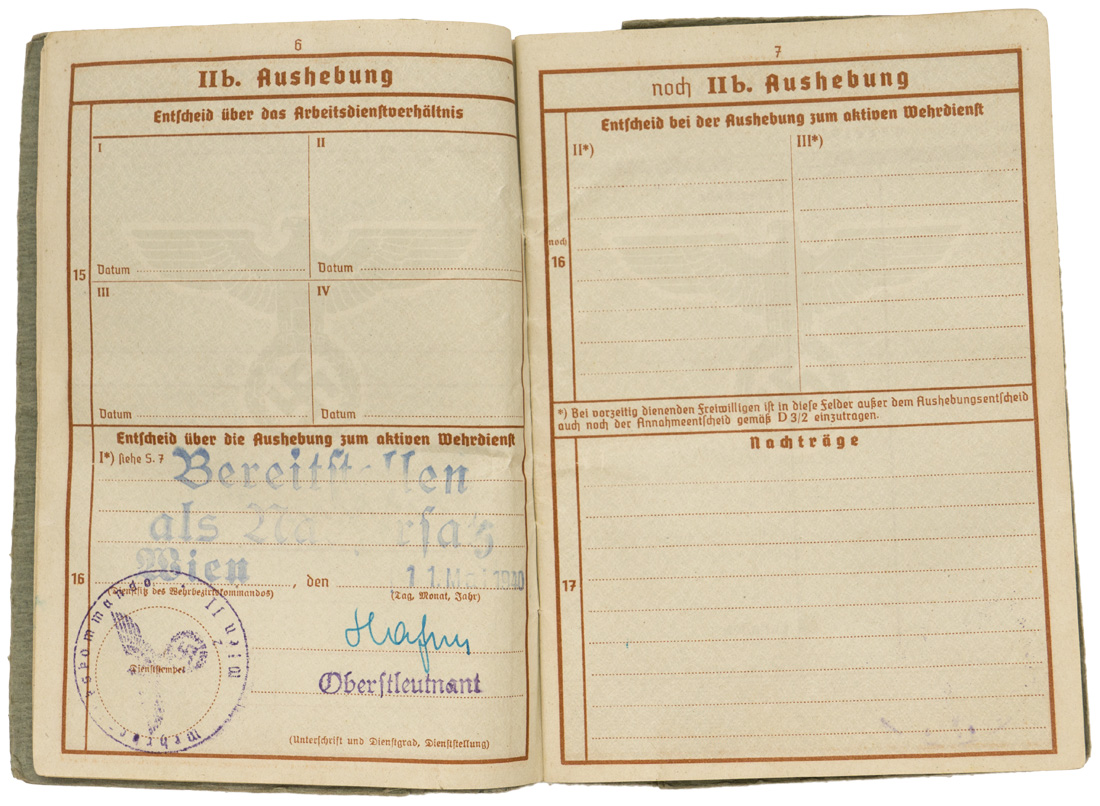 6
IIb. Aushebung
Entscheid über das Arbeitsdienstverhältnis
15
I
II
Datum
Datum
III
IV
Datum
Datum
Entscheid über die Aushebung zum aktiven Wehrdienst
16
I*) siehe S. 7
als
Wien
, den
11. Mai 1940
(Dienstsitz des Wehrbezirkkommandos)
(Tag, Monat, Jahr)
Dienststempel
Wien II
Oberstleutnant
(Unterschrift und Dienstgrad, Dienststellung)
7
noch IIb. Aushebung
Entscheid bei der Aushebung zum aktiven Wehrdienst
noch
16
II*)
III*)
*) Bei vorzeitig dienenden Freiwilligen ist in diese Felder außer dem Aushebungsentscheid
auch noch der Annahmeentscheid gemäß D 3/2 einzutragen.
Nachträge
17